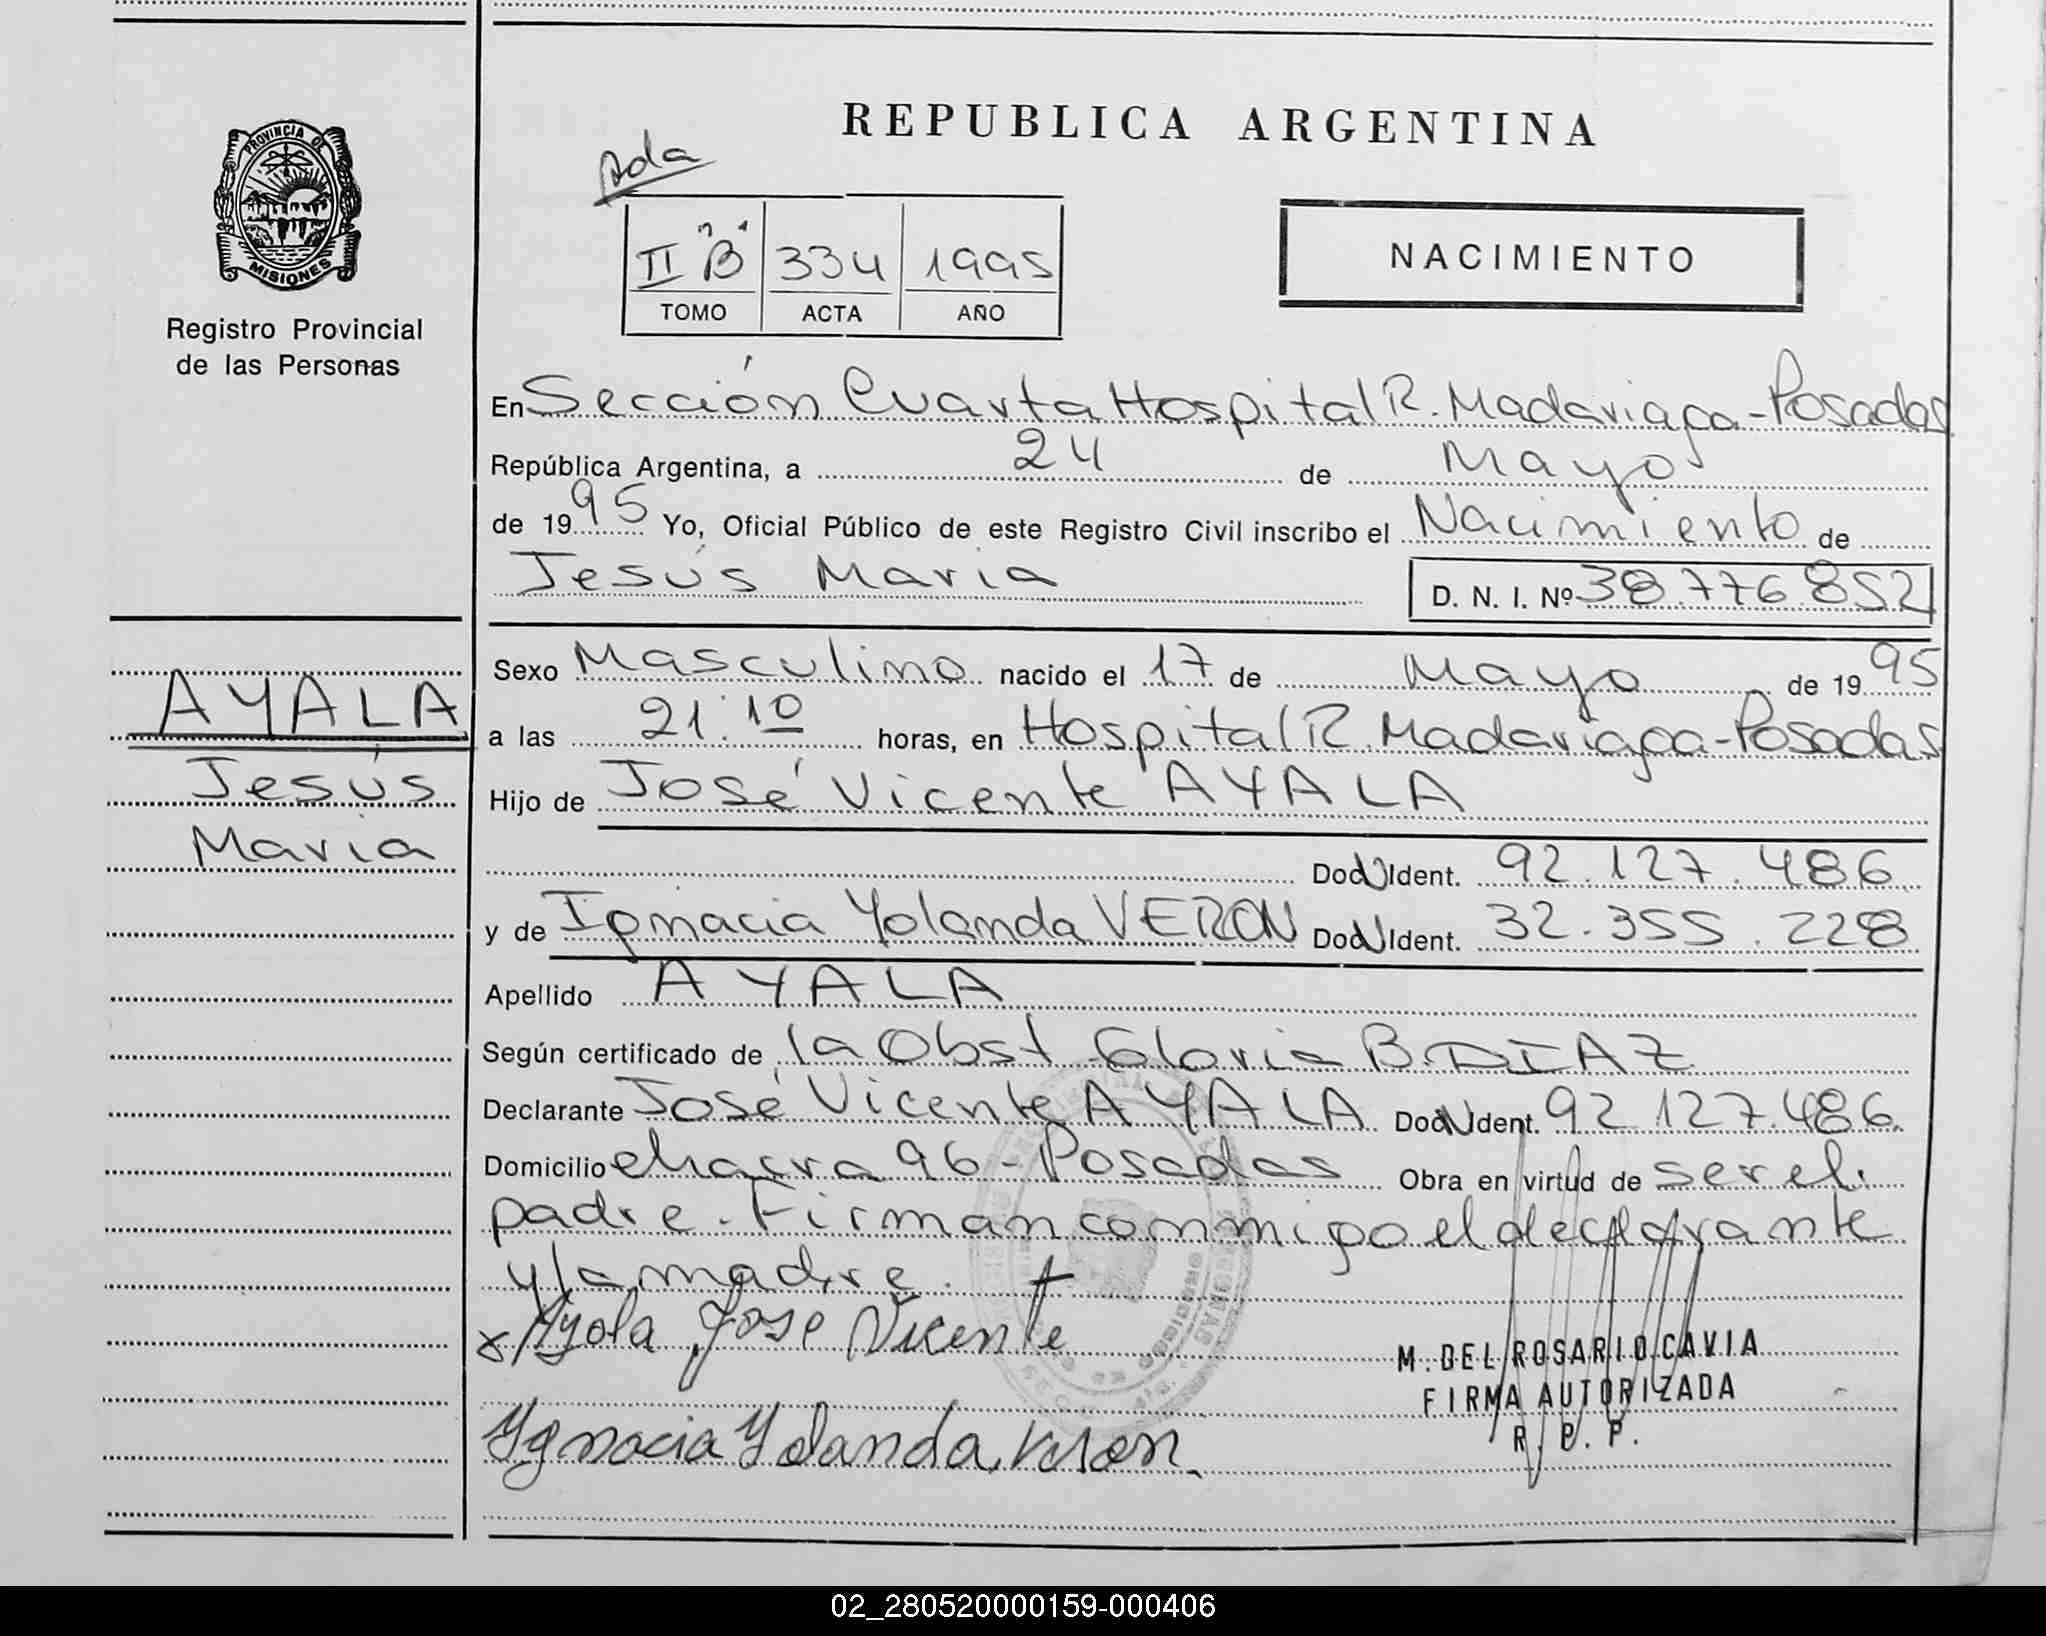 REPUBLICA ARGENTINA
PROVINCIA DE
MISIONES
Registro Provincial
de las Personas
II "B" 334 1995
TOMO ACTA AÑO
NACIMIENTO
En Sección Cuarta Hospital R. Madariaga - Posadas
República Argentina, a 24 de Mayo
de 1995 Yo, Oficial Público de este Registro Civil inscribo el Nacimiento de
Jesús Maria D. N. I. Nº 38.776.852
Sexo Masculino nacido el 17 de Mayo de 1995
a las 21:10 horas, en Hospital R. Madariaga - Posadas
Hijo de José Vicente AYALA
Doc. Ident. 92.127.486
y de Ignacia Yolanda VERON Doc. Ident. 32.355.228
Apellido AYALA
Según certificado de la Obst. Gloria B. DIAZ
Declarante José Vicente AYALA Doc. Ident. 92.127.486
Domicilio chacra 96 - Posadas Obra en virtud de ser el
padre. Firman conmigo el declarante
y la madre.
Ayala José Vicente
Ygnacia Yolanda Veron
M. DEL ROSARIO CAVIA
FIRMA AUTORIZADA
R. P. P.
AYALA
Jesús
Maria
02_280520000159-000406